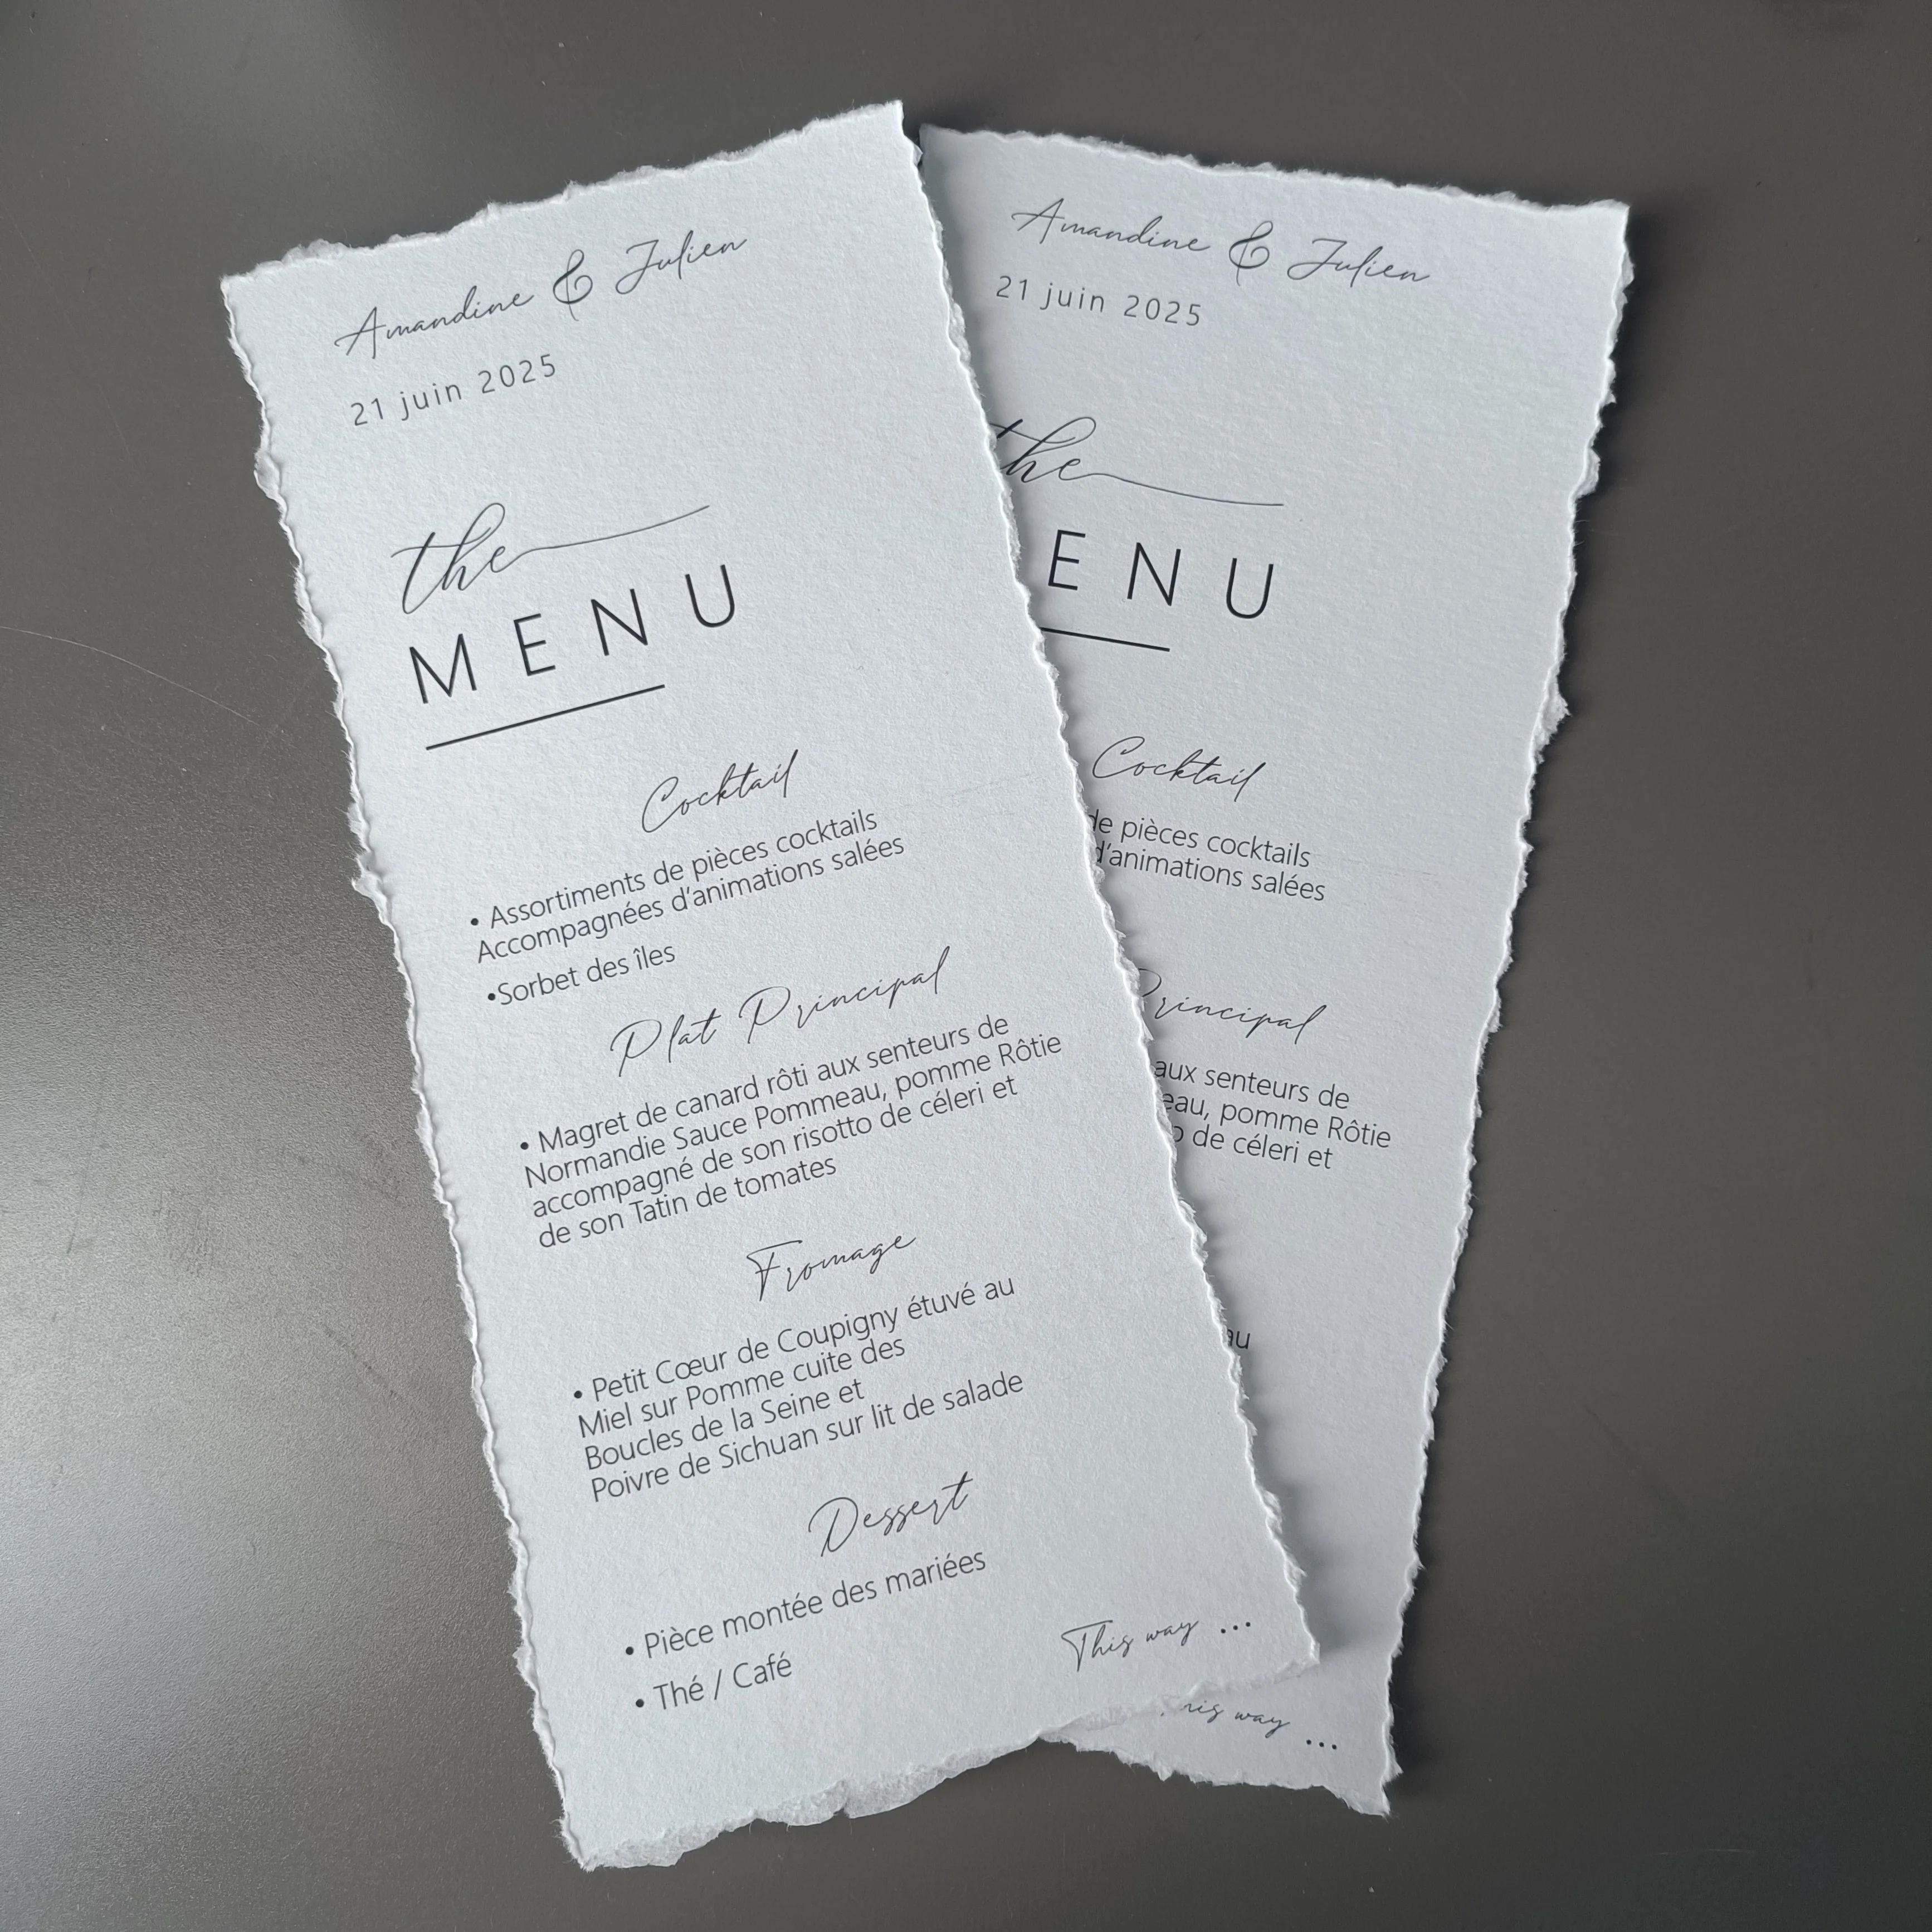 Amandine & Julien
21 juin 2025
the
MENU
Cocktail
• Assortiments de pièces cocktails
Accompagnées d'animations salées
•Sorbet des îles
Plat Principal
• Magret de canard rôti aux senteurs de
Normandie Sauce Pommeau, pomme Rôtie
accompagné de son risotto de céleri et
de son Tatin de tomates
Fromage
• Petit Cœur de Coupigny étuvé au
Miel sur Pomme cuite des
Boucles de la Seine et
Poivre de Sichuan sur lit de salade
Dessert
• Pièce montée des mariées
• Thé / Café
This way ...
Amandine & Julien
21 juin 2025
the
ENU
Cocktail
de pièces cocktails
d'animations salées
Principal
aux senteurs de
eau, pomme Rôtie
de céleri et
au
way ...